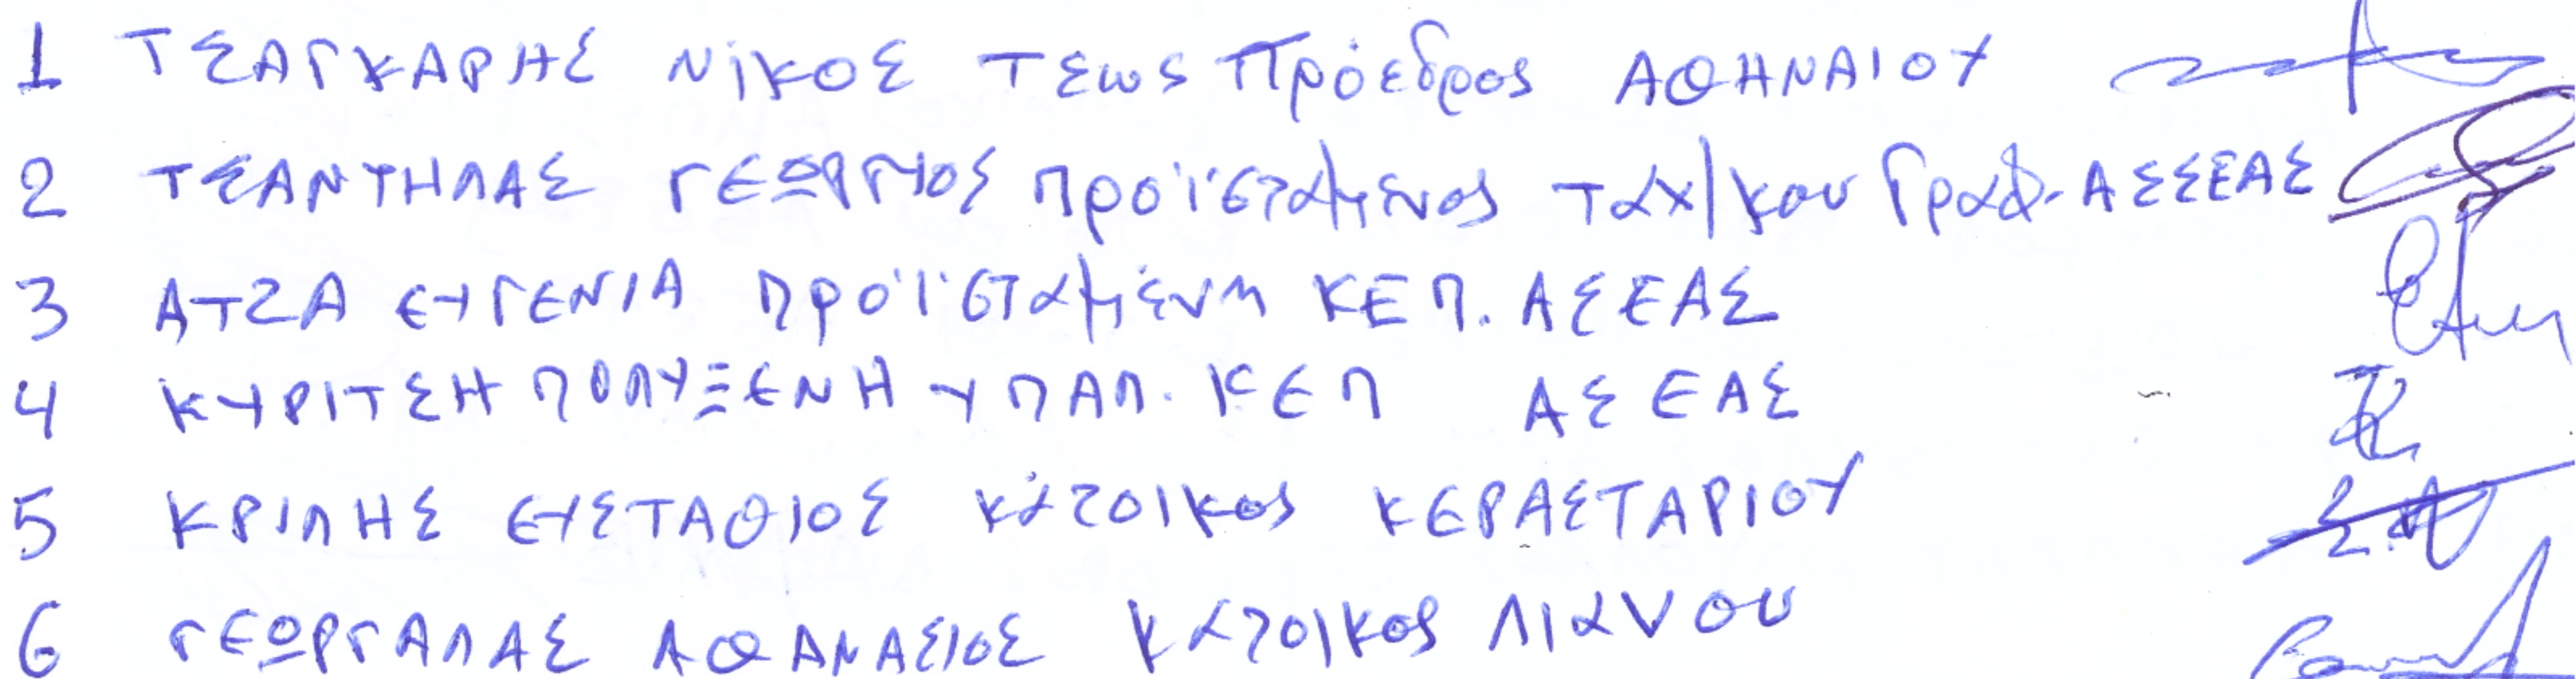 1 ΤΣΑΓΚΑΡΗΣ ΝΙΚΟΣ Τεως Πρόεδρος ΑΘΗΝΑΙΟΥ
2 ΤΣΑΝΤΗΛΑΣ ΓΕΩΡΓΙΟΣ Προϊστάμενος ταχ/κου Γραφ. ΑΣΣΕΑΣ
3 ΑΤΖΑ ΕΥΓΕΝΙΑ Προϊσταμένη ΚΕΠ. ΑΣΕΑΣ
4 ΚΥΡΙΤΣΗ ΠΟΛΥΞΕΝΗ ΥΠΑΛ. ΚΕΠ ΑΣΕΑΣ
5 ΚΡΙΛΗΣ ΕΥΣΤΑΘΙΟΣ κάτοικος ΚΕΡΑΣΤΑΡΙΟΥ
6 ΓΕΩΡΓΑΛΑΣ ΑΘΑΝΑΣΙΟΣ κάτοικος Λιανου